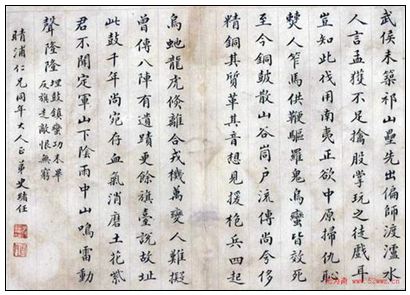 武侯未築祁山壘先出偏師渡瀘水
人言孟獲不足擒股掌玩之徒戲耳
豈知此伐用南夷正欲中原掃仇恥
僰人笮馬供鞭驅羅鬼烏蠻皆效死
至今銅鼓散山谷峒戶流傳尚今侈
精銅其質革其音想見援枹兵四起
鳥蛇龍虎倏離合戎機萬變人難擬
曾傳八陣有遺蹟更餘旗臺說故址
此鼓千年尚宛存血氣消磨土花紫
君不聞定軍山下陰雨中山鳴雷動
聲隆隆埋鼓鎮蠻功未畢
反旗走敵恨無窮
晴浦仁兄同年大人正 弟史緒任